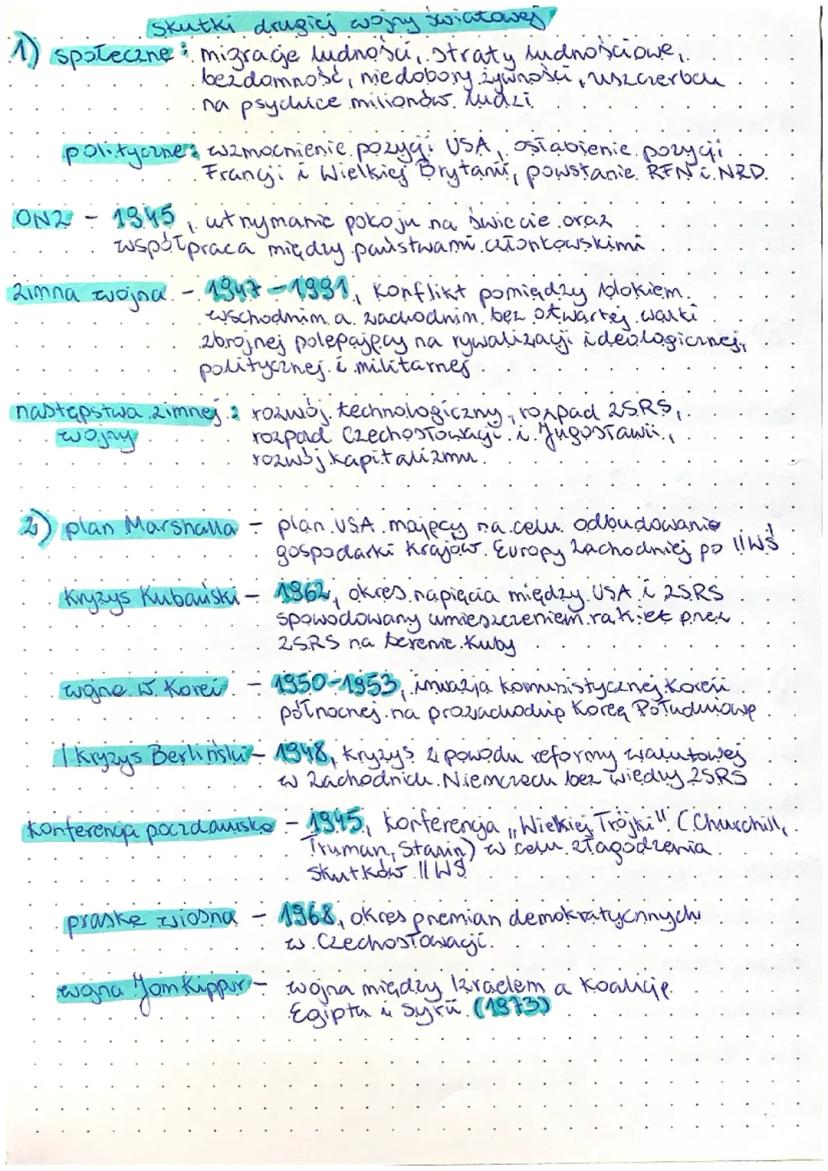 skutki drugiej wojny światowej
1) społeczne: migracje ludności, straty ludnościowe,
bezdomność, niedobory żywności, uszczerbek
na psychice milionów ludzi
polityczne: wzmocnienie pozycji USA, osłabienie pozycji
Francji i Wielkiej Brytanii, powstanie RFN i NRD
ONZ - 1945, utrzymanie pokoju na świecie oraz
współpraca między państwami członkowskimi
zimna wojna - 1947-1991, konflikt pomiędzy blokiem
wschodnim a zachodnim bez otwartej walki
zbrojnej polegający na rywalizacji ideologicznej,
politycznej i militarnej
następstwa zimnej : rozwój technologiczny, rozpad ZSRS,
wojny rozpad Czechosłowacji i Jugosławii,
rozwój kapitalizmu
2) plan Marshalla - plan USA mający na celu odbudowanie
gospodarki krajów Europy Zachodniej po II WŚ
Kryzys Kubański - 1962, okres napięcia między USA i ZSRS
spowodowany umieszczeniem rakiet przez
ZSRS na terenie Kuby
wojna w Korei - 1950-1953, inwazja komunistycznej Korei
północnej na prozachodnią Koreę Południową
I Kryzys Berliński - 1948, kryzys z powodu reformy walutowej
w Zachodnich Niemczech bez wiedzy ZSRS
Konferencja poczdamska - 1945, konferencja „Wielkiej Trójki" (Churchill,
Truman, Stalin) w celu złagodzenia
skutków II WŚ
praska wiosna - 1968, okres przemian demokratycznych
w Czechosłowacji
wojna Jom Kippur - wojna między Izraelem a koalicją
Egiptu i Syrii (1973)